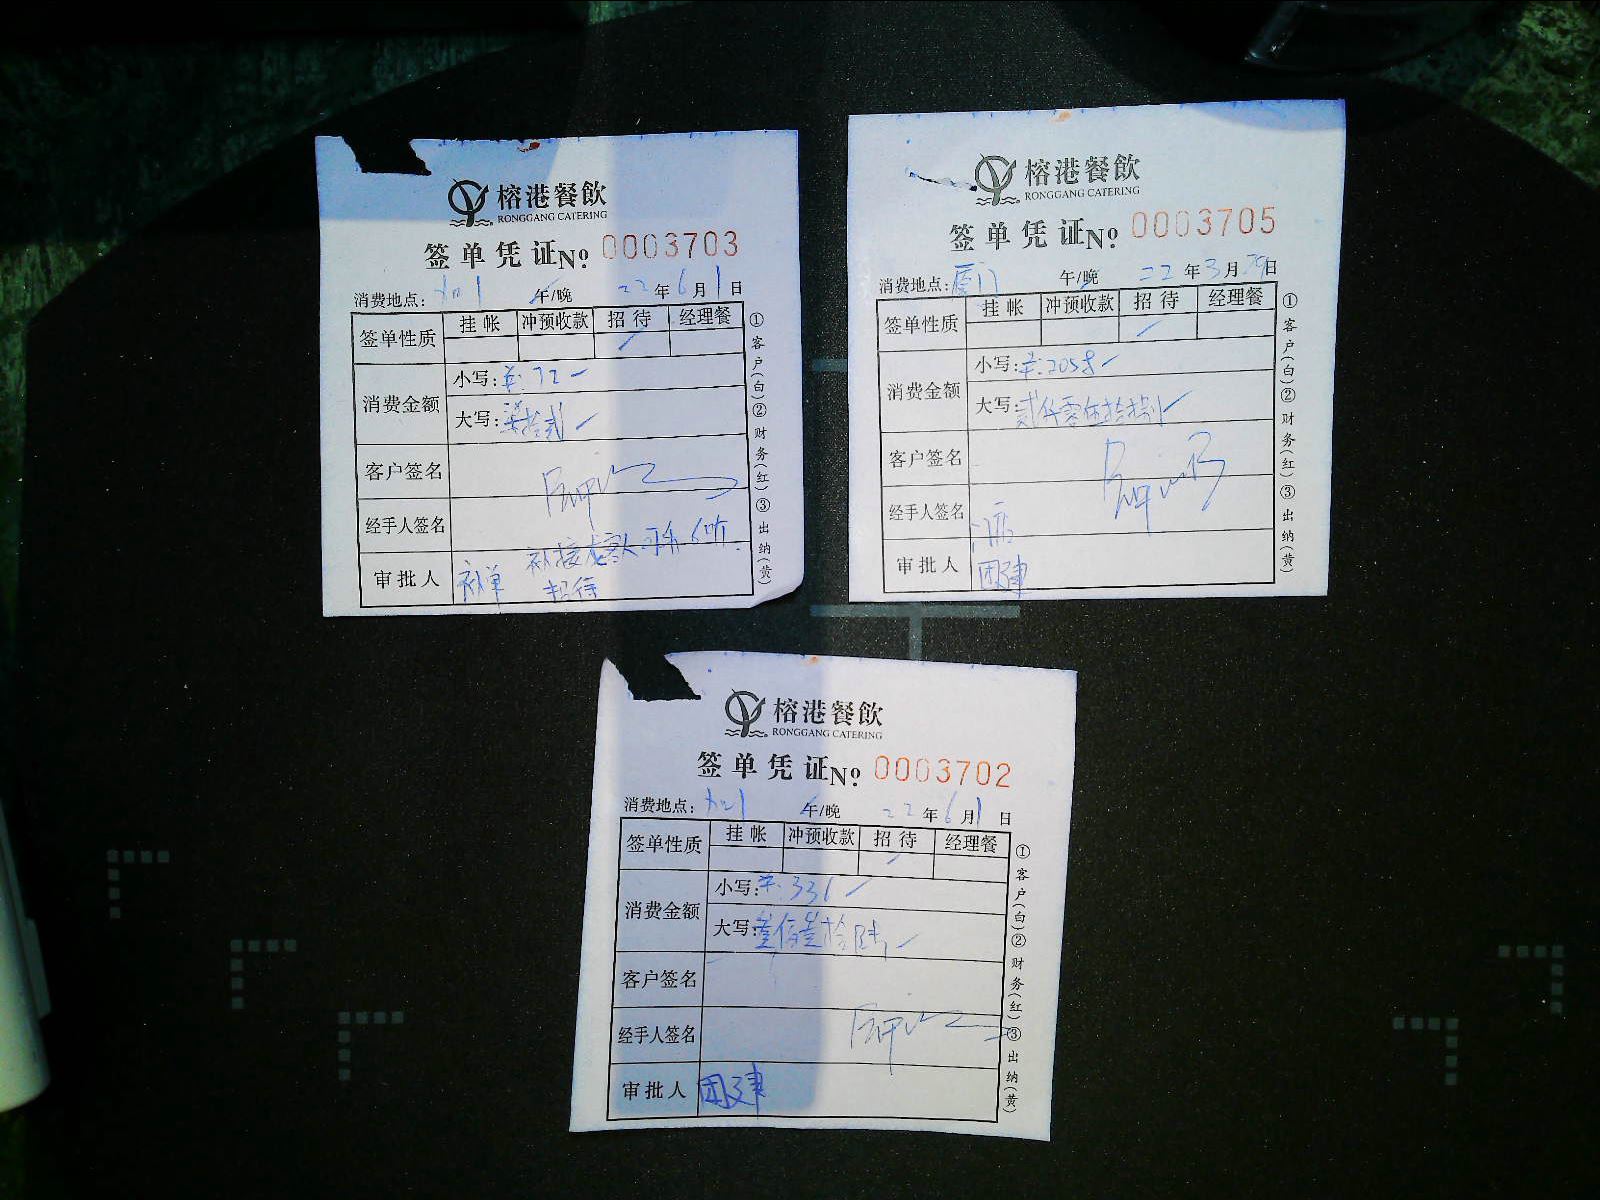 榕港餐飲
RONGGANG CATERING
签单凭证 No. 0003703
消费地点： 午/晚 22年6月1日
签单性质 挂帐 冲预收款 招待 经理餐
消费金额 小写：¥:72
大写：柒拾贰
客户签名
经手人签名
审批人 补单 招待
①客户（白）②财务（红）③出纳（黄）
榕港餐飲
RONGGANG CATERING
签单凭证 No. 0003705
消费地点：厦门 午/晚 22年3月29日
签单性质 挂帐 冲预收款 招待 经理餐
消费金额 小写：¥:2058
大写：贰仟零伍拾捌
客户签名
经手人签名
审批人 团建
①客户（白）②财务（红）③出纳（黄）
榕港餐飲
RONGGANG CATERING
签单凭证 No. 0003702
消费地点： 午/晚 22年6月1日
签单性质 挂帐 冲预收款 招待 经理餐
消费金额 小写：
大写：
客户签名
经手人签名
审批人 团建
①客户（白）②财务（红）③出纳（黄）